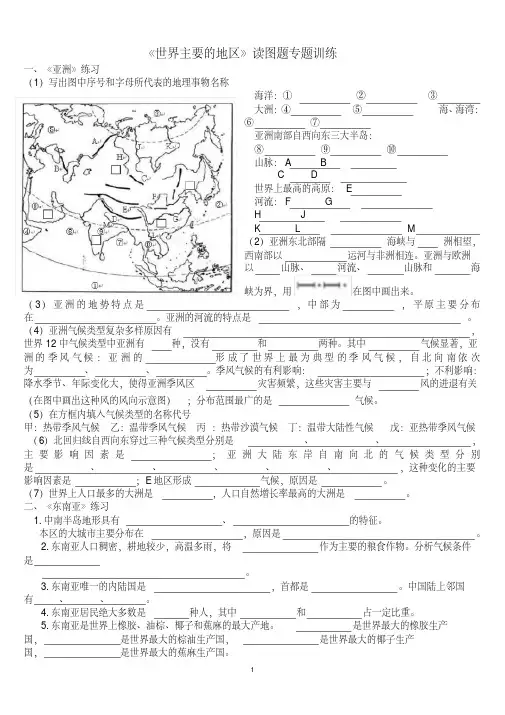 《世界主要的地区》读图题专题训练
一、《亚洲》练习
(1)写出图中序号和字母所代表的地理事物名称
海洋:① ② ③
大洲:④ ⑤ 海、海湾:
⑥ ⑦
亚洲南部自西向东三大半岛:
⑧ ⑨ ⑩
山脉: A B
C D
世界上最高的高原: E
河流: F G
H J
K L M
(2)亚洲东北部隔 海峡与 洲相望,
西南部以 运河与非洲相连。亚洲与欧洲
以 山脉、 河流、 山脉和 海
峡为界,用 在图中画出来。
(3)亚洲的地势特点是 ,中部为 ,平原主要分布
在 。亚洲的河流的特点是 。
(4)亚洲气候类型复杂多样原因有 ,
世界12中气候类型中亚洲有 种,没有 和 两种。其中 气候显著,亚
洲的季风气候:亚洲的 形成了世界上最为典型的季风气候,自北向南依次
为 、 、 。季风气候的有利影响: ;不利影响:
降水季节、年际变化大,使得亚洲季风区 灾害频繁,这些灾害主要与 风的进退有关
(在图中画出这种风的风向示意图) ;分布范围最广的是 气候。
(5)在方框内填人气候类型的名称代号
甲:热带季风气候 乙:温带季风气候 丙 :热带沙漠气候 丁:温带大陆性气候 戊:亚热带季风气候
(6)北回归线自西向东穿过三种气候类型分别是 、 、 ,
主要影响因素是 ;亚洲大陆东岸自南向北的气候类型分别
是 、 、 、 、 ,这种变化的主要
影响因素是 ;E地区形成 气候,原因是 。
(7)世界上人口最多的大洲是 ,人口自然增长率最高的大洲是 。
二、《东南亚》练习
1.中南半岛地形具有 、 的特征。
本区的大城市主要分布在 ,原因是 。
2.东南亚人口稠密,耕地较少,高温多雨,将 作为主要的粮食作物。分析气候条件
是
。
3.东南亚唯一的内陆国是 ,首都是 。中国陆上邻国
有 、 、 。
4.东南亚居民绝大多数是 种人,其中 和 占一定比重。
5.东南亚是世界上橡胶、油棕、椰子和蕉麻的最大产地。 是世界最大的橡胶生产
国, 是世界最大的棕油生产国, 是世界最大的椰子生产
国, 是世界最大的蕉麻生产国。
1